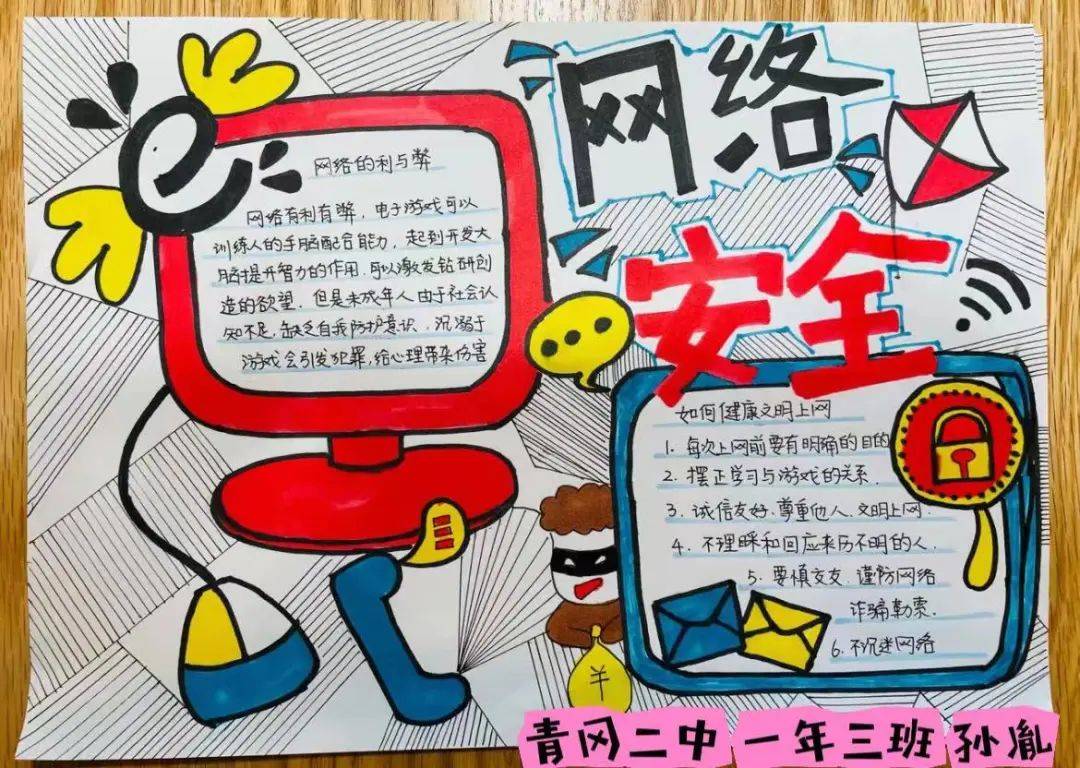 网络
安全
网络的利与弊
网络有利有弊，电子游戏可以
训练人的手脑配合能力，起到开发大
脑提升智力的作用，可以激发钻研创
造的欲望，但是未成年人由于社会认
知不足，缺乏自我防护意识，沉溺于
游戏会引发犯罪，给心理带来伤害
如何健康文明上网
1. 每次上网前要有明确的目的
2. 摆正学习与游戏的关系.
3. 诚信友好、尊重他人、文明上网.
4. 不理睬和回应来历不明的人.
5. 要慎交友、谨防网络
诈骗勒索.
6. 不沉迷网络
青冈二中 一年三班 孙胤